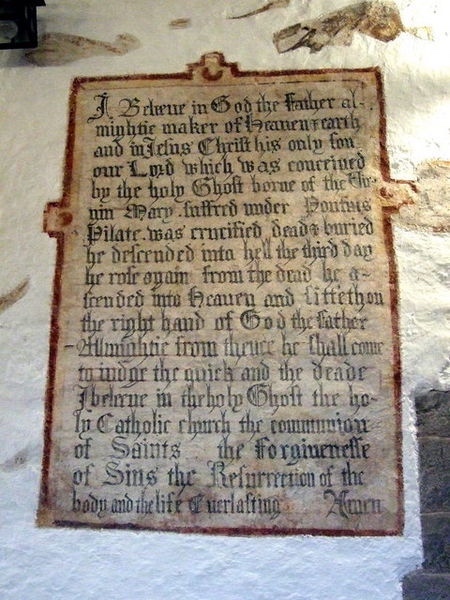 I Beleeue in God the Father al-
mightie maker of Heauen & earth
and in Iesus Christ his only son
our Lord which was conceiued
by the holy Ghost borne of the Vir
nin Mary, suffred under Pontius
Pilate. was crucified, dead & buried
he descended into hell the third day
he rose again from the dead he a-
scended into Heauen and sitteth on
the right hand of God the Father
Allmightie from thence he shall come
to iudge the quick and the deade
I beleeue in the holy Ghost the ho-
ly Catholic church the communion
of Saints the Forgiuenesse
of Sins the Resurrection of the
body and the life Euerlasting Amen